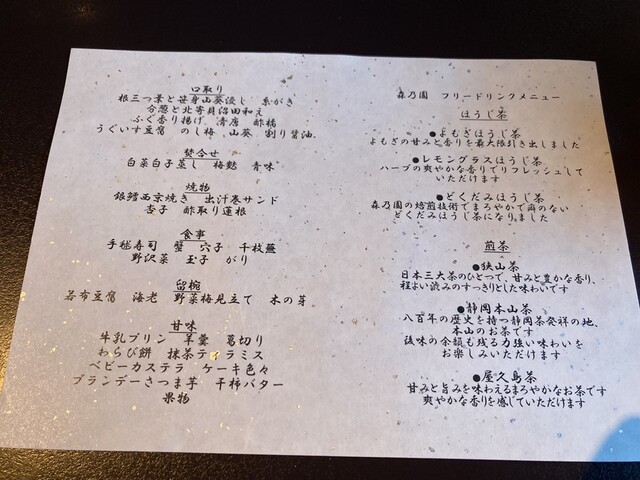 口取り
根三つ葉と笹身山葵浸し 糸がき
分葱と北寄貝沼田和え
ふぐ香り揚げ 清唐 酢橘
うぐいす豆腐 のし梅 山葵 割り醤油
焚合せ
白菜白子蒸し 梅麩 青味
焼物
銀鱈西京焼き 出汁巻サンド
杏子 酢取り蓮根
食事
手毬寿司 蟹 穴子 千枚蕪
野沢菜 玉子 がり
留椀
若布豆腐 海老 野菜梅見立て 木の芽
甘味
牛乳プリン 羊羹 葛切り
わらび餅 抹茶ティラミス
ベビーカステラ ケーキ色々
ブランデーさつま芋 干柿バター
果物
森乃園 フリードリンクメニュー
ほうじ茶
●よもぎほうじ茶
よもぎの甘みと香りを最大限引き出しました
●レモングラスほうじ茶
ハーブの爽やかな香りでリフレッシュして
いただけます
●どくだみほうじ茶
森乃園の焙煎技術でまろやかで雑のない
どくだみほうじ茶になりました
煎茶
●狭山茶
日本三大茶のひとつで、甘みと豊かな香り、
程よい渋みのすっきりとした味わいです
●静岡本山茶
八百年の歴史を持つ静岡茶発祥の地、
本山のお茶です
後味の余韻も残る力強い味わいを
お楽しみいただけます
●屋久島茶
甘みと旨みを味わえるまろやかなお茶です
爽やかな香りを感じていただけます